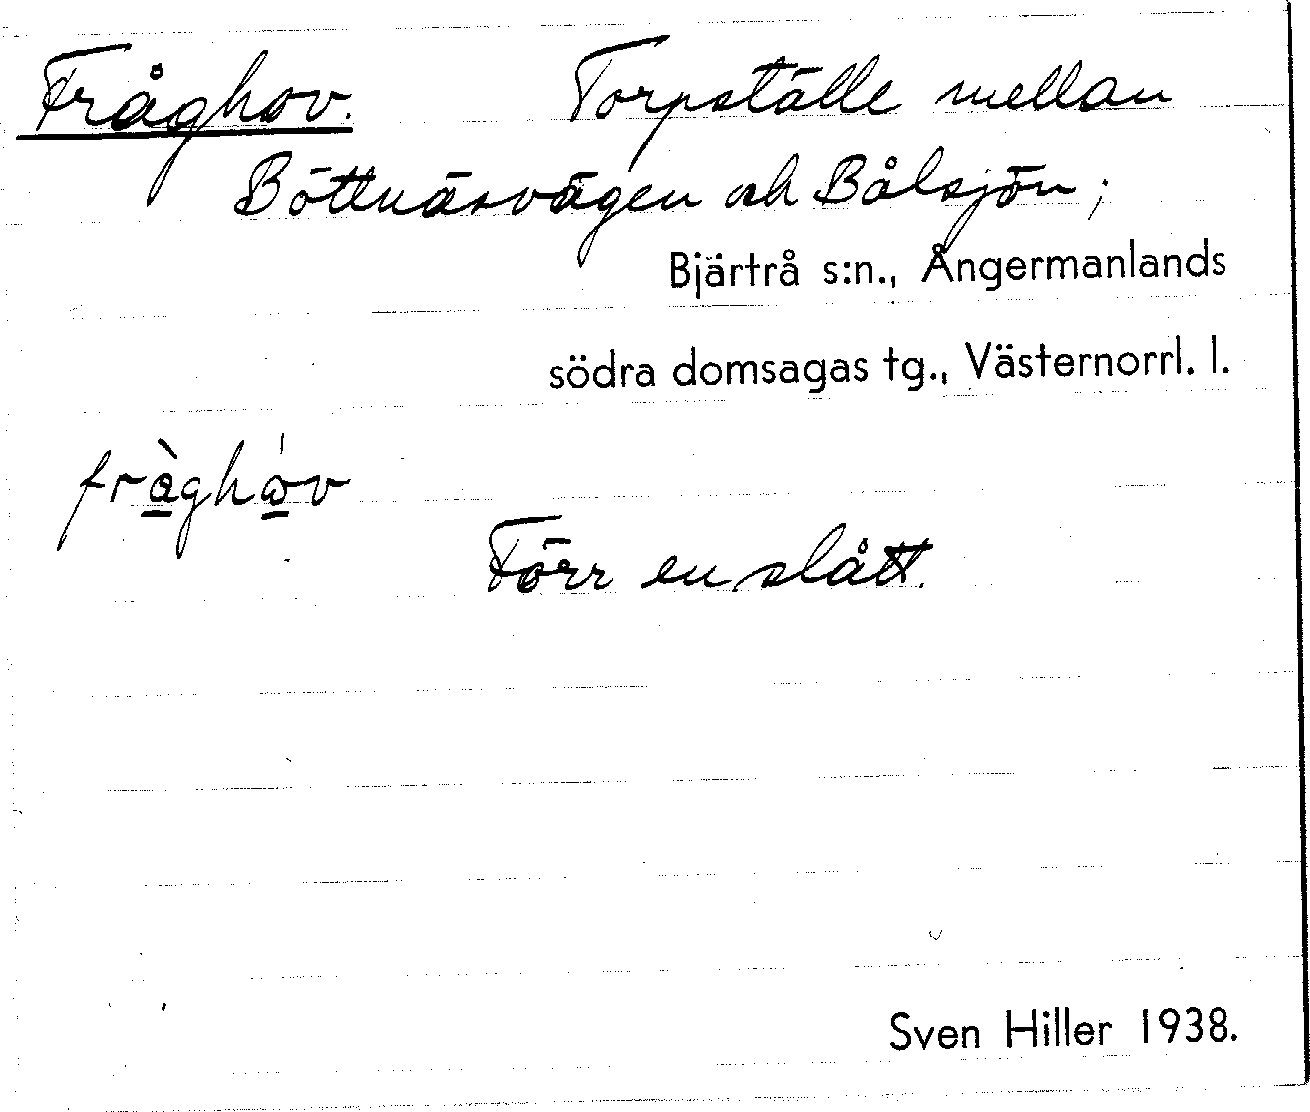 Fråghov. Torpställe mellan
Böttnäsvägen och Bålsjön;
Bjärtrå s:n., Ångermanlands
södra domsagas tg., Västernorrl. l.
Förr en slått.
Sven Hiller 1938.